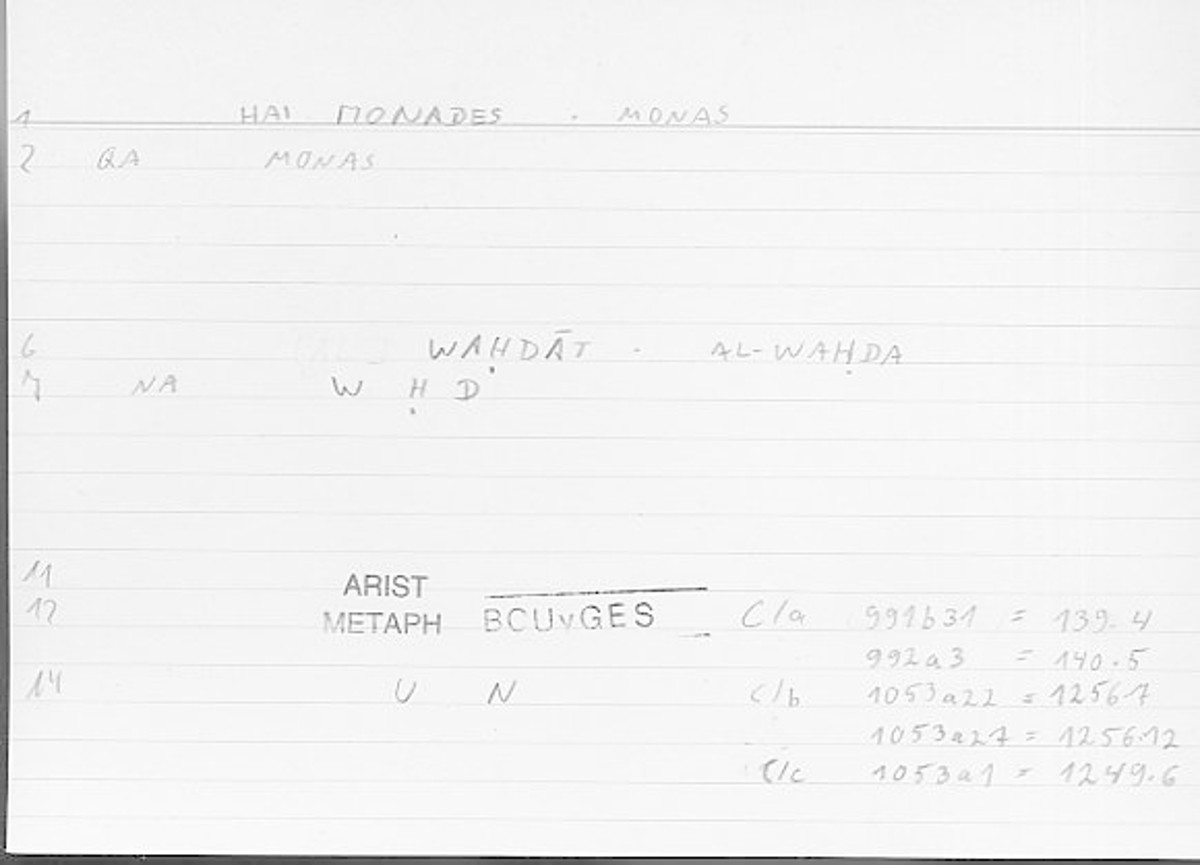 1 HAI MONADES . MONAS
2 QA MONAS
6 WAḤDĀT . AL-WAḤDA
7 NA W Ḥ D
11 ARIST
12 METAPH BCUvGES C/a 991b31 = 139.4
992a3 = 140.5
14 U N C/b 1053a22 = 1256.7
1053a27 = 1256.12
C/c 1053a1 = 1249.6